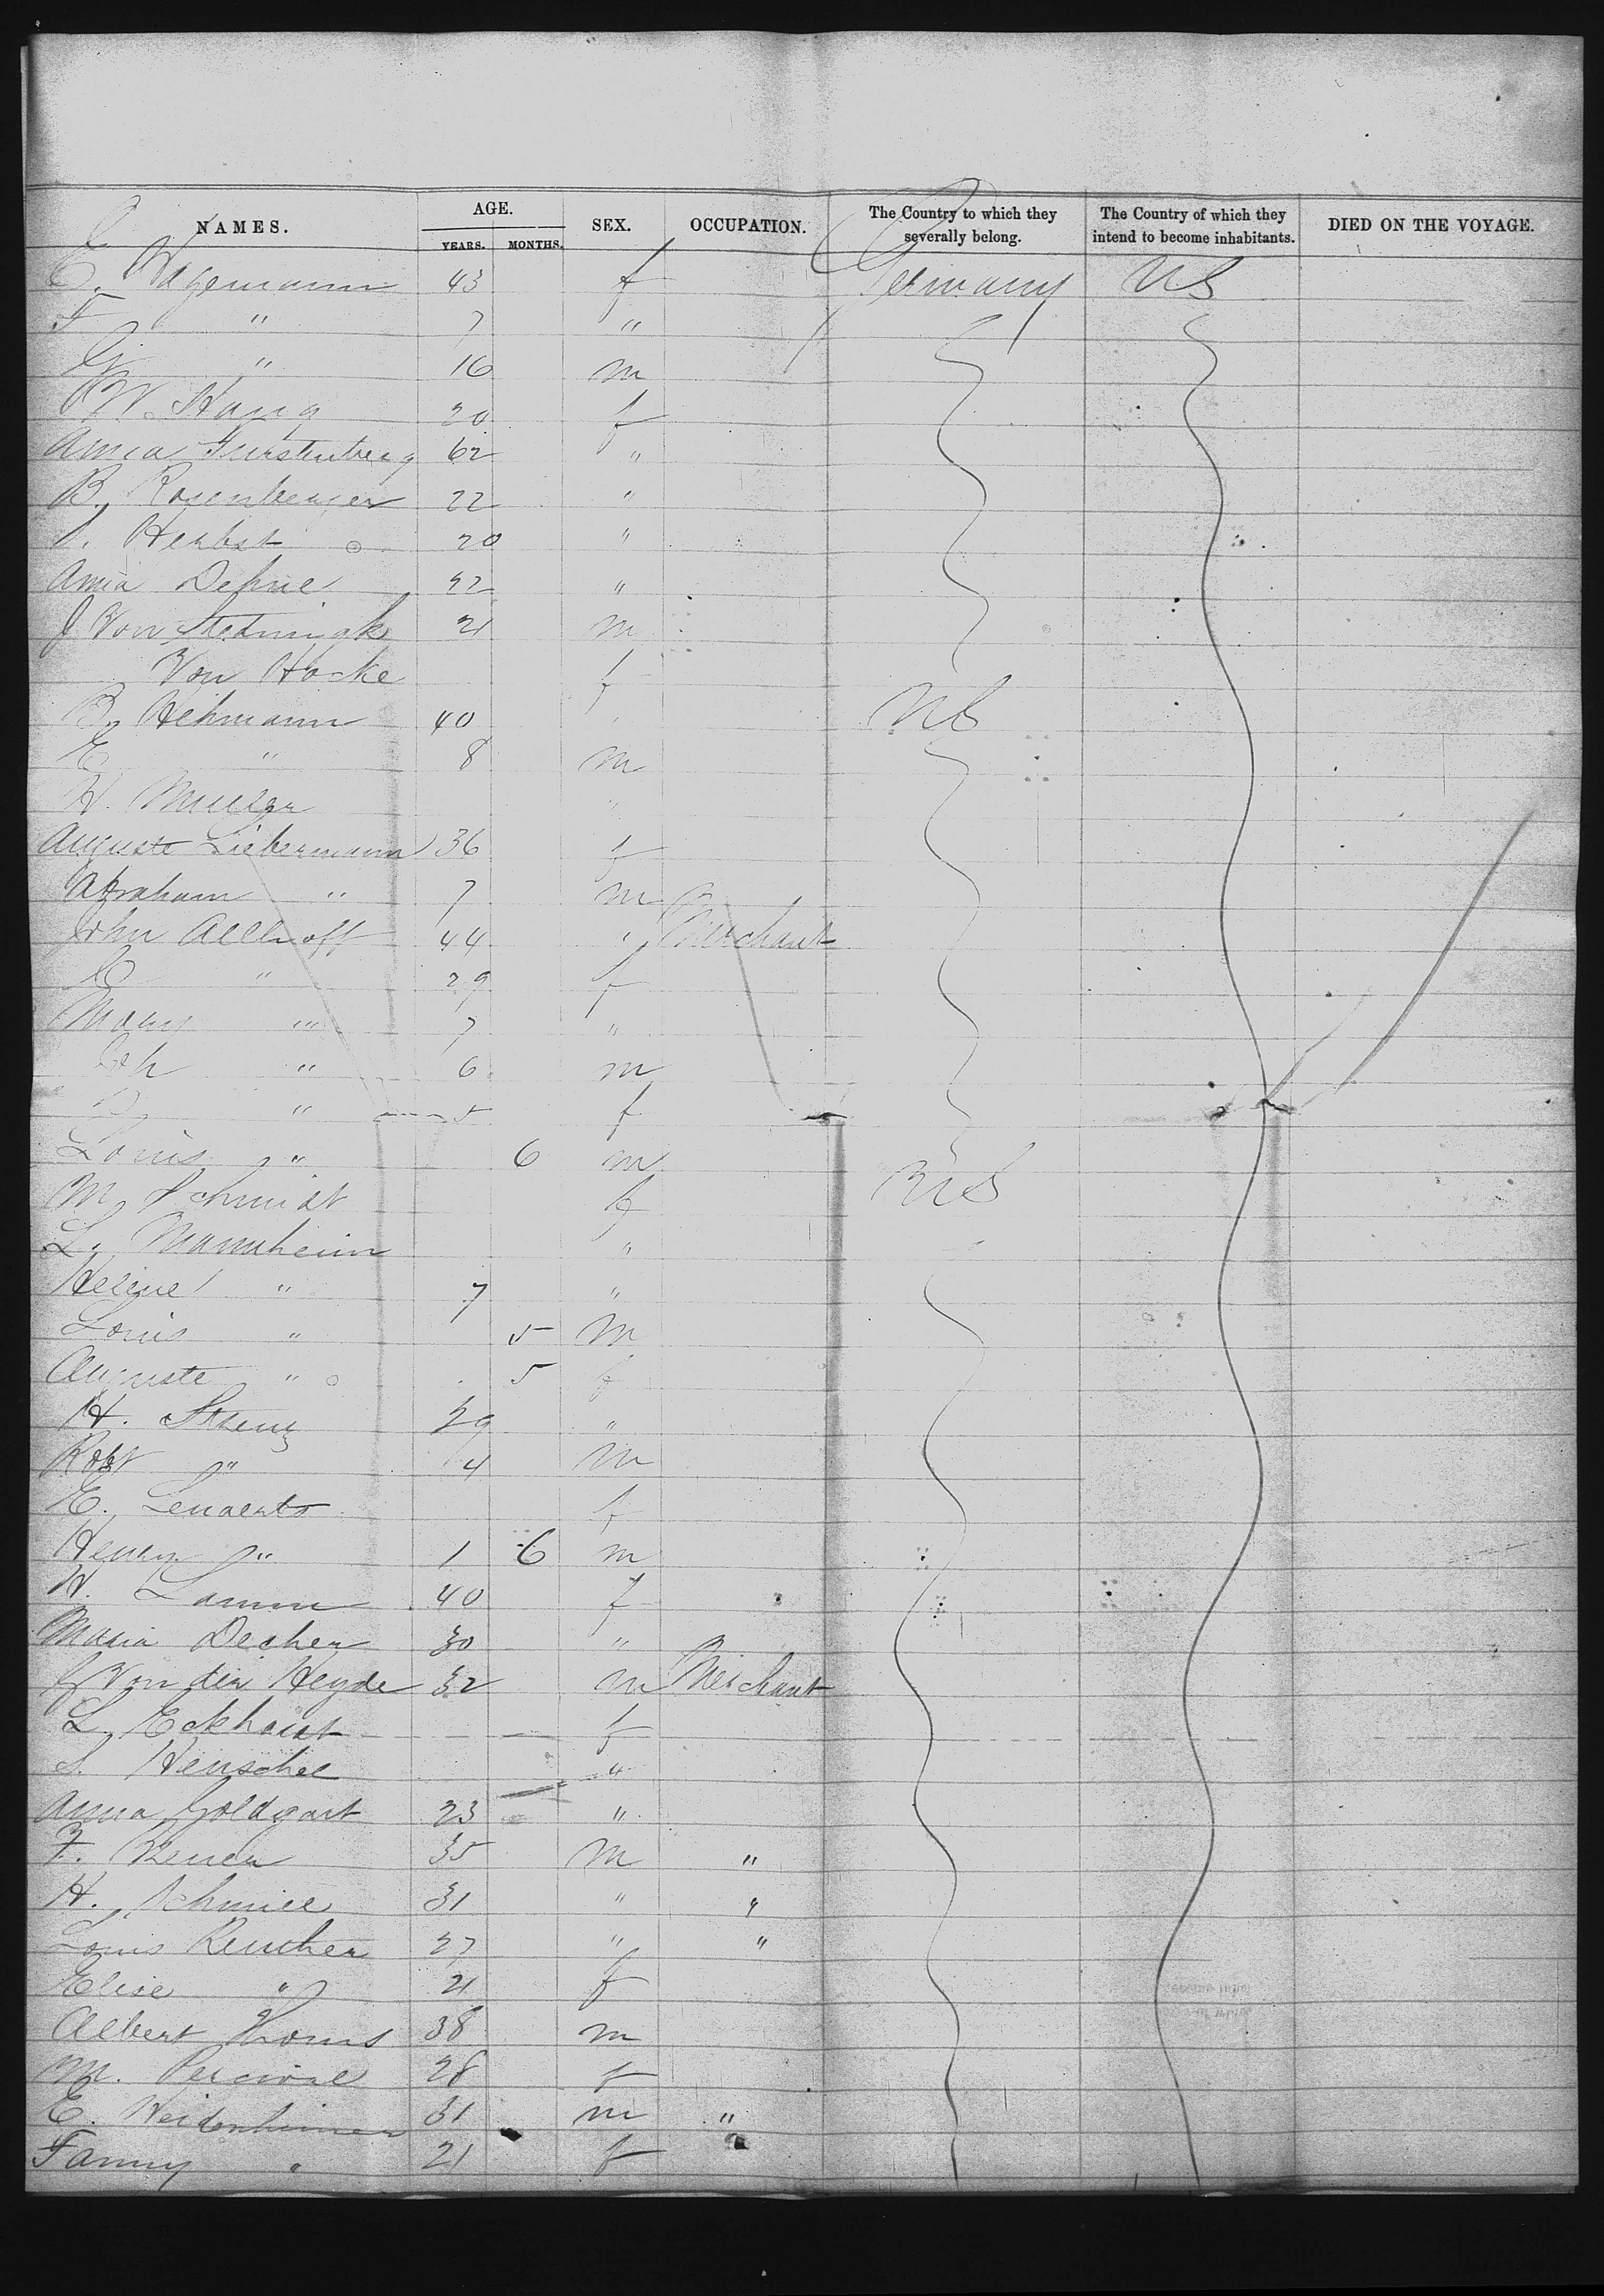 NAMES. AGE. YEARS. MONTHS. SEX. OCCUPATION. The Country to which they severally belong. The Country of which they intend to become inhabitants. DIED ON THE VOYAGE.
C. Wagemann 43 f Germany US
F " 7 "
G " 16 m
W. Haug 20 f
Anna Furstenberg 62 "
B. Rosenberger 22 "
Herbst 20 "
Anna Dehne 22 "
J Von Stedingk 21 m
Von Hacke f
B. Hehmann 40 " US
E " 8 m
H. Muller "
Auguste Liebermann 36 f
Abraham " 7 m
John Allhoff 44 " Merchant
E " 29 f
Mary " 7 "
" 6 m
" 5 f
Louis " 6 m
M. Schmidt f US
L. Mannheim "
Helene " 7 "
Louis " 5 m
Auguste " 5 f
H. Strenz 29 "
Robt " 4 m
E. Lenaerts f
Henry " 1 6 m
H. Lamm 40 f
Maria Decher 30 "
G Von der Heyde 32 m Merchant
L. Eckhardt f
S. Henschel "
Anna Goldgart 23 "
F. 35 m "
H. Schmill 31 " "
Louis Reucher 27 " "
Elise " 21 f
Albert Thoms 38 m
M. Percival 28 f
E. Heidenheimer 31 m "
Fanny " 21 f